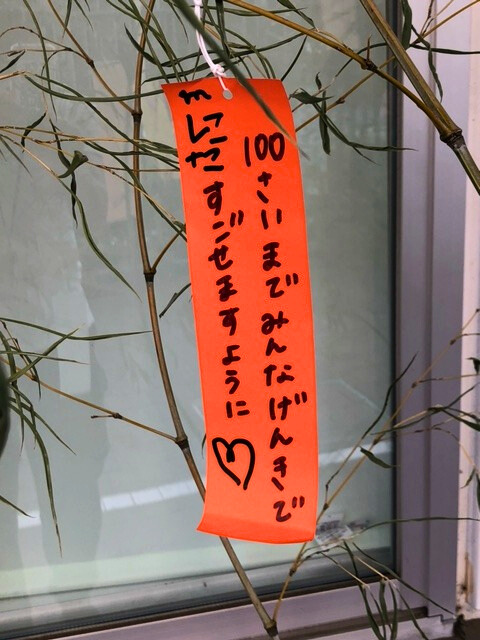 100さいまでみんなげんきで
すごせますように♡